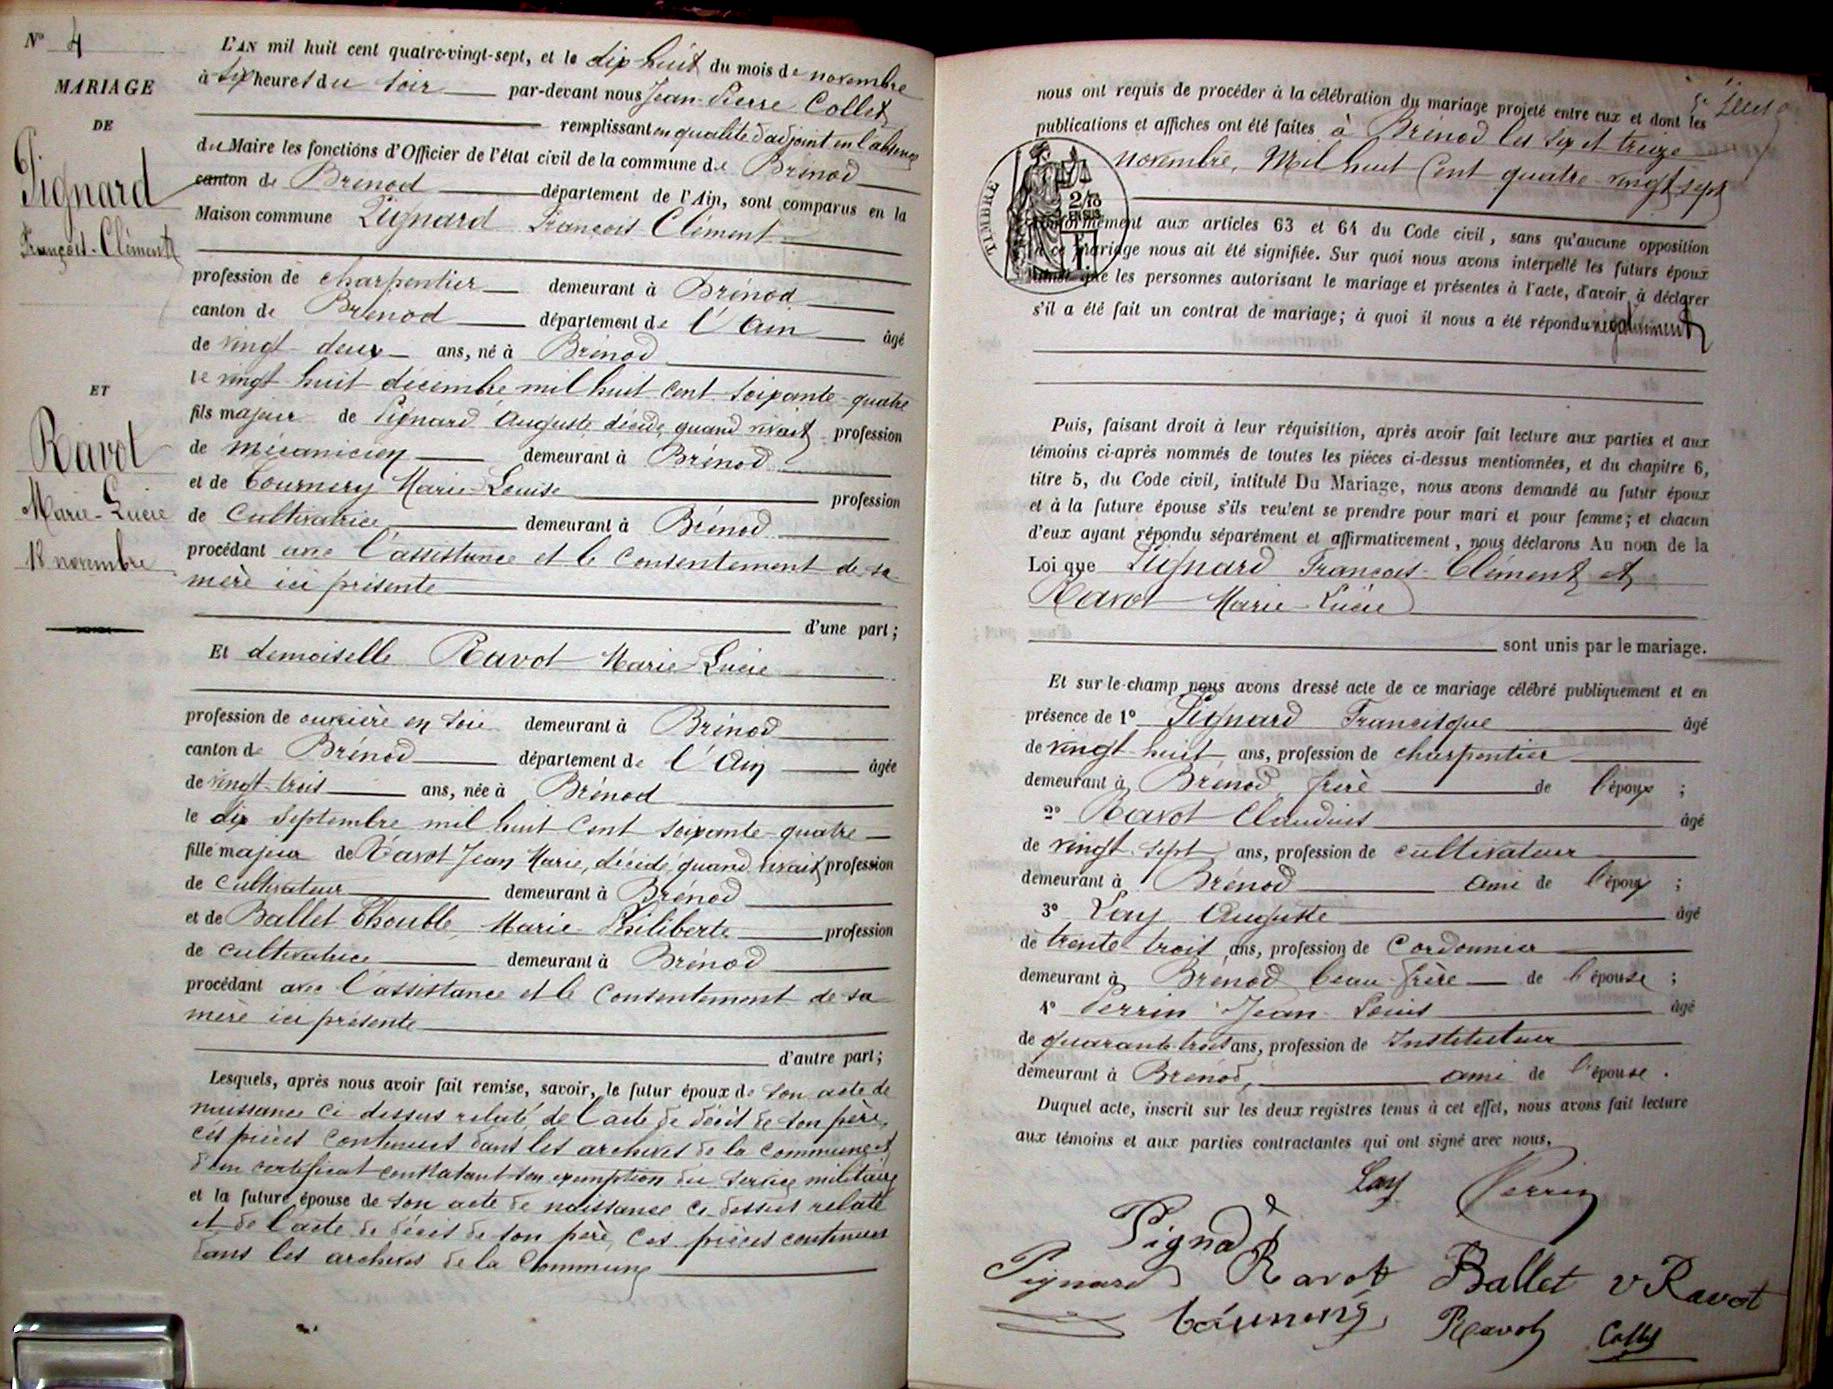 N° 4
MARIAGE
DE
Pignard
François-Clément
ET
Ravot
Marie-Lucie
18 novembre
L'AN mil huit cent quatre-vingt-sept, et le dix huit du mois de novembre
à six heures du soir par-devant nous Jean-Pierre Collet
remplissant en qualité d'adjoint en l'absence
du Maire les fonctions d'Officier de l'état civil de la commune de Brénod
canton de Brénod département de l'Ain, sont comparus en la
Maison commune Pignard François Clément
profession de charpentier demeurant à Brénod
canton de Brénod département de l'Ain âgé
de vingt-deux ans, né à Brénod
le vingt huit décembre mil huit cent soixante-quatre
fils majeur de Pignard Auguste décédé, quand vivait profession
de mécanicien demeurant à Brénod
et de Tournery Marie-Louise profession
de cultivatrice demeurant à Brénod
procédant avec l'assistance et le consentement de sa
mère ici présente
d'une part;
Et demoiselle Ravot Marie-Lucie
profession de ouvrière en soie demeurant à Brénod
canton de Brénod département de l'Ain âgée
de vingt-trois ans, née à Brénod
le dix septembre mil huit cent soixante-quatre
fille majeur de Ravot Jean Marie, décédé, quand vivait profession
de cultivateur demeurant à Brénod
et de Ballet Thouble, Marie-Philiberte profession
de cultivatrice demeurant à Brénod
procédant avec l'assistance et le consentement de sa
mère ici présente
d'autre part;
Lesquels, après nous avoir fait remise, savoir, le futur époux de son acte de
naissance ci-dessus relaté, de l'acte de décès de son père,
ces pièces contenues dans les archives de la commune et
d'un certificat constatant son exemption du service militaire
et la future épouse de son acte de naissance ci-dessus relaté
et de l'acte de décès de son père, ces pièces contenues
dans les archives de la Commune
nous ont requis de procéder à la célébration du mariage projeté entre eux et dont les
publications et affiches ont été faites à Brénod les six et treize
novembre, Mil huit cent quatre-vingt-sept
TIMBRE
conformément aux articles 63 et 64 du Code civil, sans qu'aucune opposition
à ce mariage nous ait été signifiée. Sur quoi nous avons interpellé les futurs époux
ainsi que les personnes autorisant le mariage et présentes à l'acte, d'avoir à déclarer
s'il a été fait un contrat de mariage; à quoi il nous a été répondu négativement
Puis, faisant droit à leur réquisition, après avoir fait lecture aux parties et aux
témoins ci-après nommés de toutes les pièces ci-dessus mentionnées, et du chapitre 6,
titre 5, du Code civil, intitulé Du Mariage, nous avons demandé au futur époux
et à la future épouse s'ils veulent se prendre pour mari et pour femme; et chacun
d'eux ayant répondu séparément et affirmativement, nous déclarons Au nom de la
Loi que Pignard François-Clément et
Ravot Marie-Lucie
sont unis par le mariage.
Et sur-le-champ nous avons dressé acte de ce mariage célébré publiquement et en
présence de 1° Pignard Francisque âgé
de vingt-huit ans, profession de charpentier
demeurant à Brénod, frère de l'époux ;
2° Ravot Claudius âgé
de vingt-sept ans, profession de cultivateur
demeurant à Brénod ami de l'époux ;
3° Lay Auguste âgé
de trente-trois ans, profession de Cordonnier
demeurant à Brénod beau-frère de l'épouse ;
4° Perrin Jean-Louis âgé
de quarante-trois ans, profession de Instituteur
demeurant à Brénod, ami de l'épouse.
Duquel acte, inscrit sur les deux registres tenus à cet effet, nous avons fait lecture
aux témoins et aux parties contractantes qui ont signé avec nous.
Lay Perrin
Pignard
Pignard Ravot Ballet v Ravot
Ravot Collet